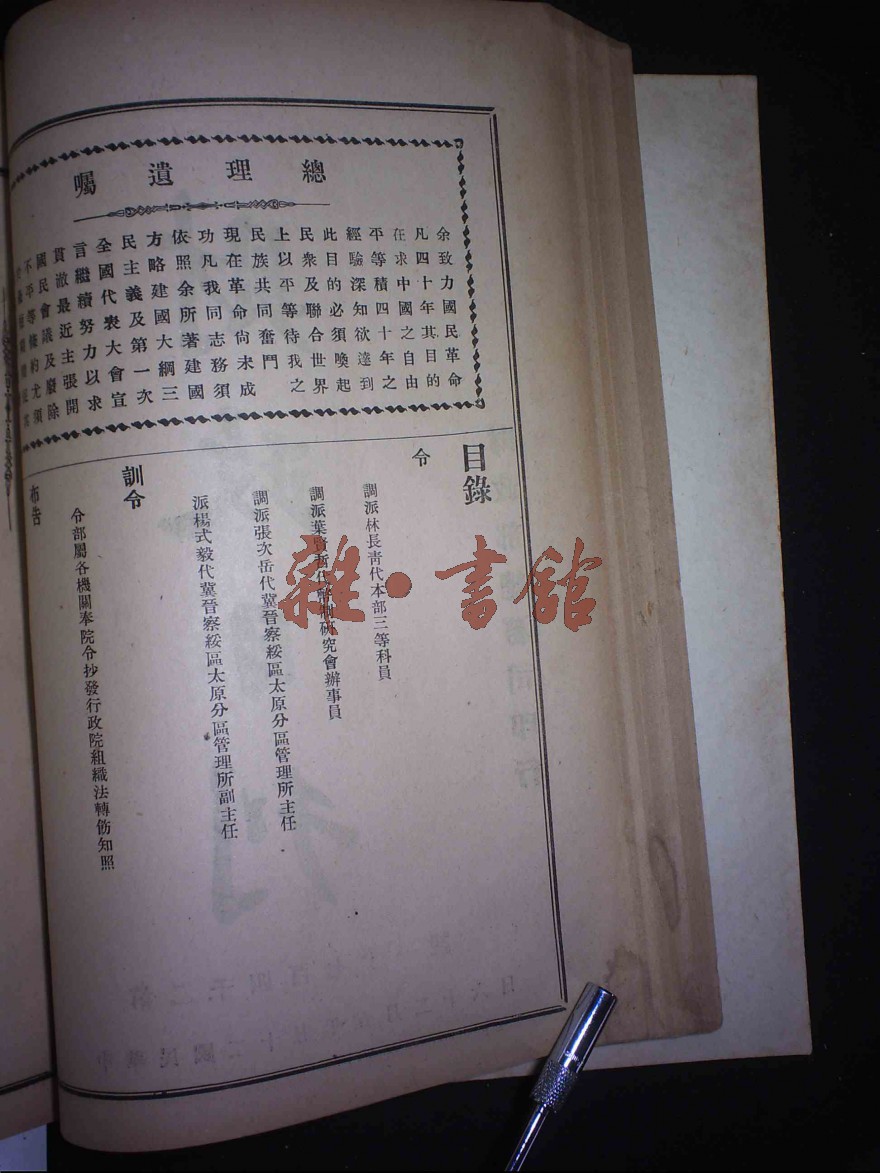 總理遺囑
余致力國民革命
凡四十年其目的
在求中國之自由
平等積四十年之
經驗深知欲達到
此目的必須喚起
民衆及聯合世界
上以平等待我之
民族共同奮鬥
現在革命尙未成
功凡我同志務須
依照余所著建國
方略建國大綱三
民主義及第一次
全國代表大會宣
言繼續努力以求
貫澈最近主張開
國民會議及廢除
不平等條約尤須
目錄
令
調派林長靑代本部三等科員
調派葉
研究會辦事員
調派張次岳代冀晉察綏區太原分區管理所主任
派楊式毅代冀晉察綏區太原分區管理所副主任
訓令
令部屬各機關奉院令抄發行政院組織法轉飭知照
布告
雜·書館